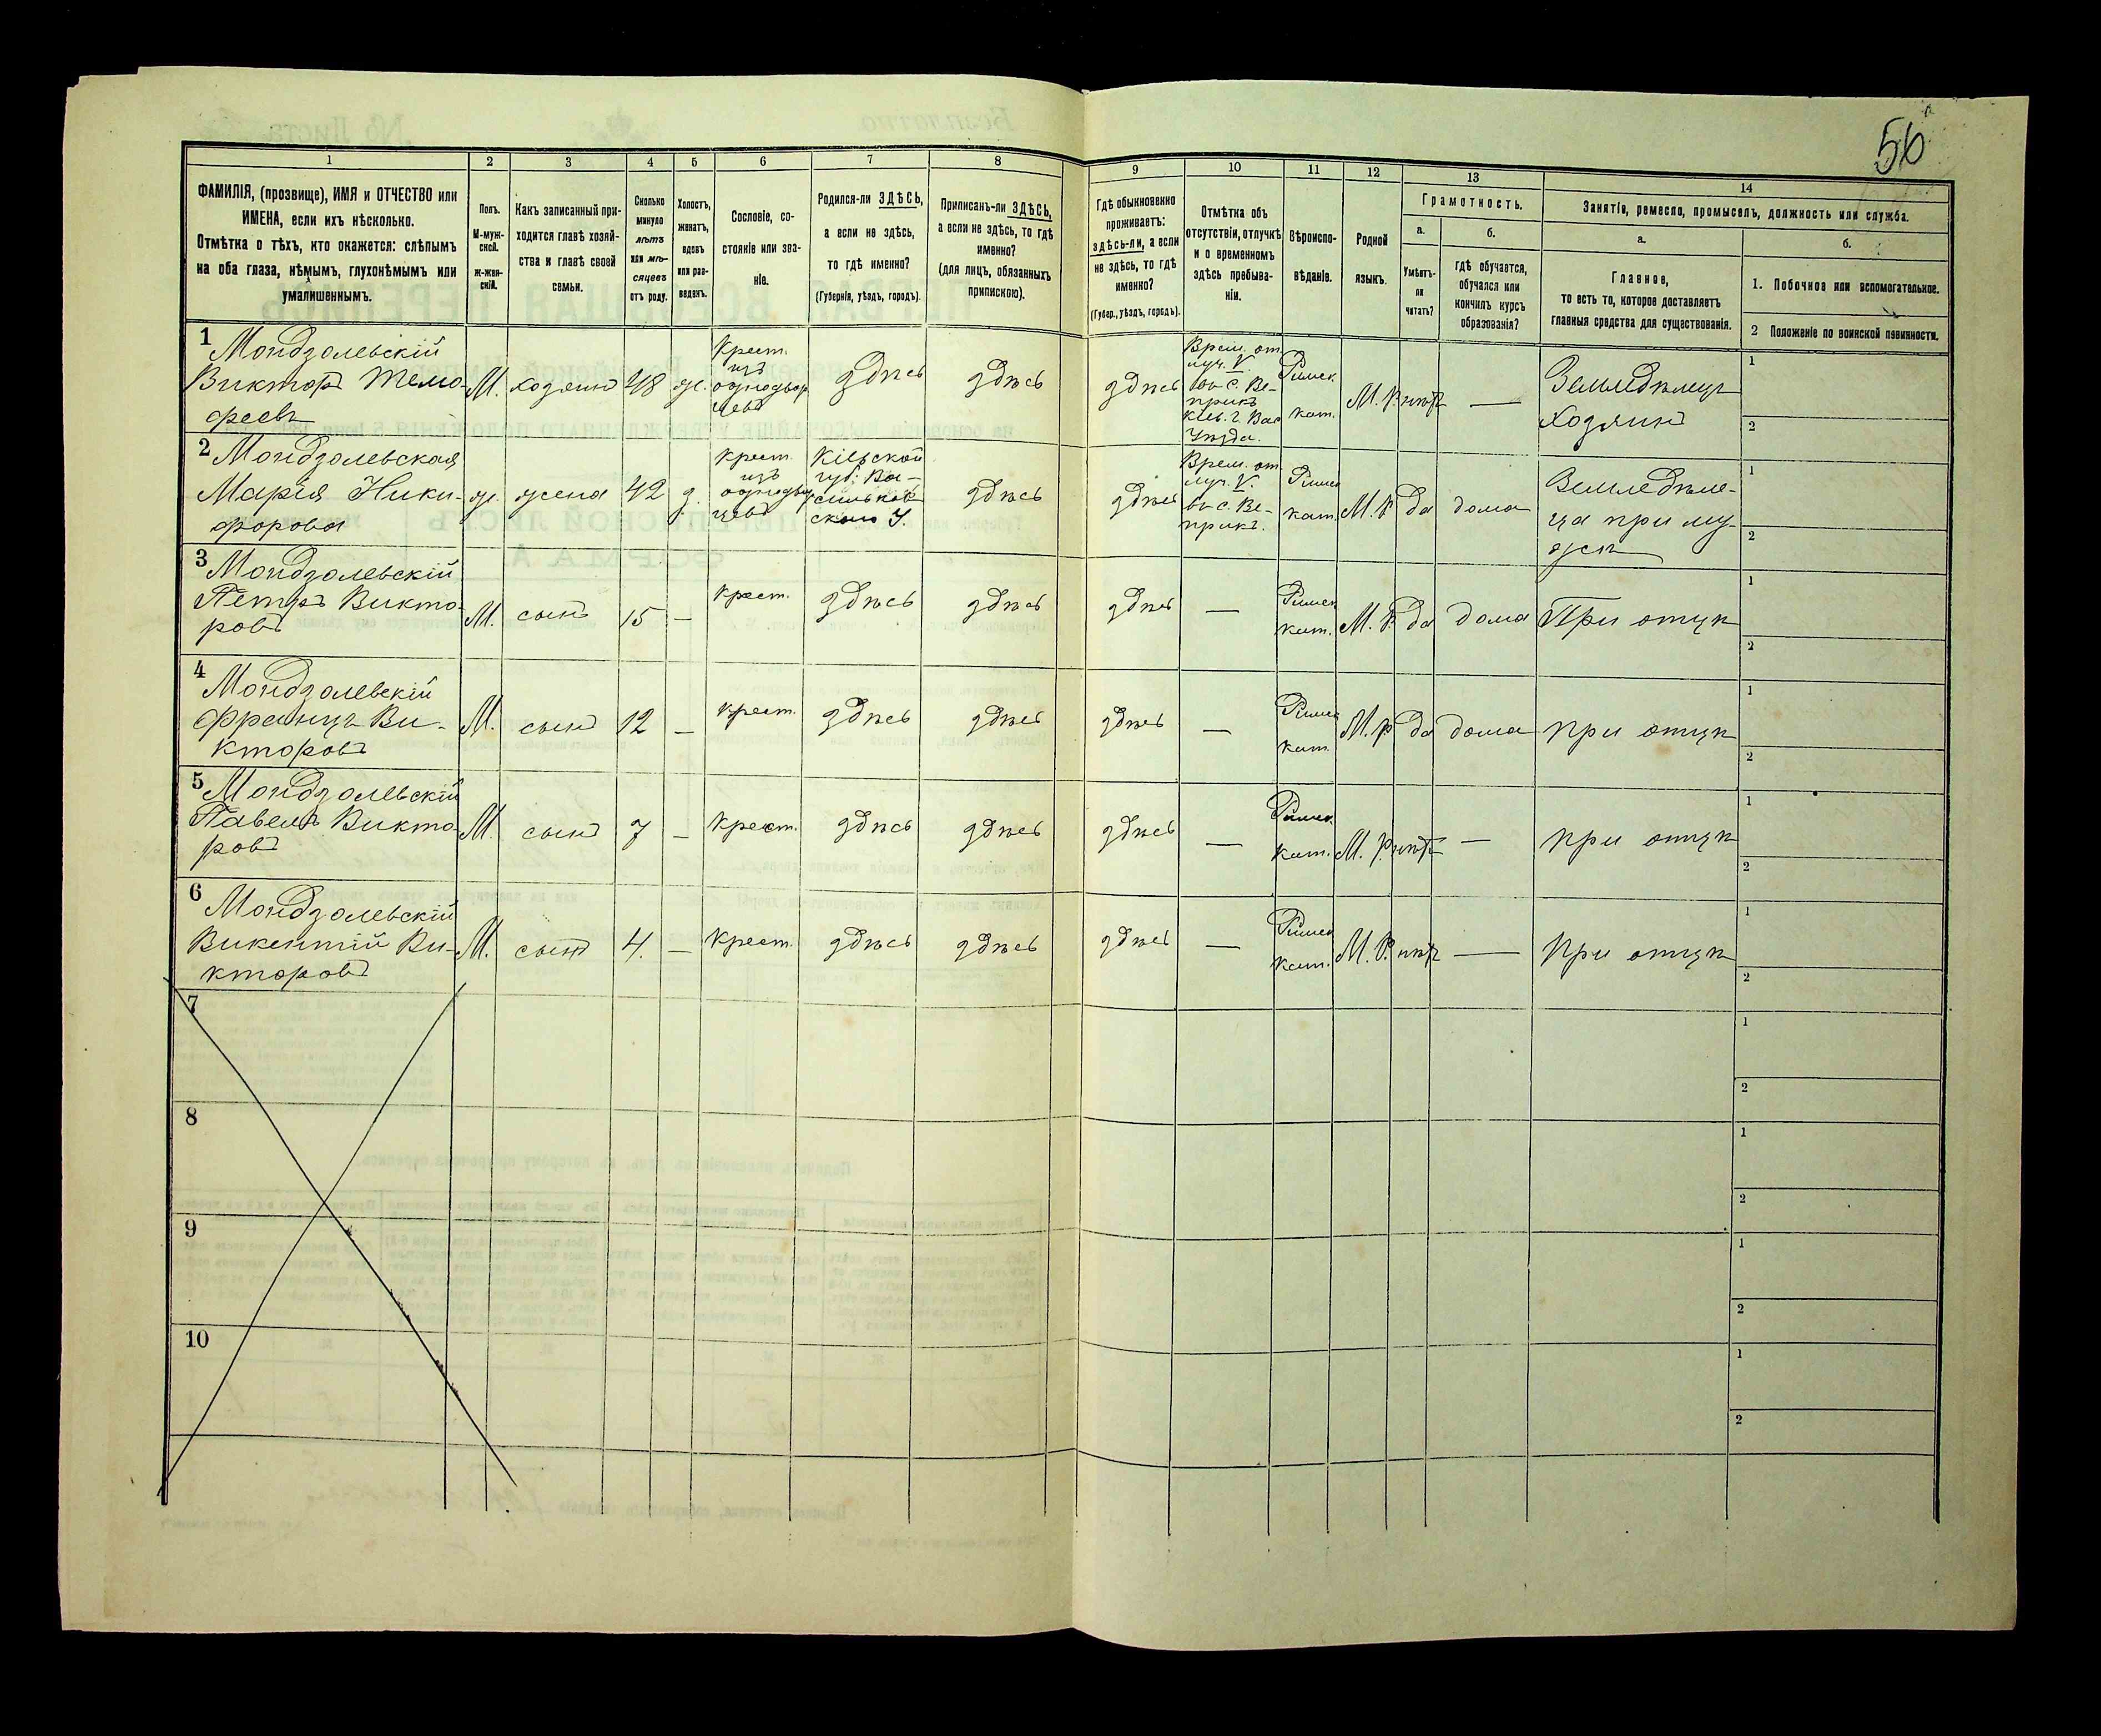 56
1
2
3
4
5
6
7
8
9
10
11
12
13
14
ФАМИЛІЯ, (прозвище), ИМЯ и ОТЧЕСТВО или
ИМЕНА, если ихъ нѣсколько.
Отмѣтка о тѣхъ, кто окажется: слѣпымъ
на оба глаза, нѣмымъ, глухонѣмымъ или
умалишеннымъ.
Полъ.
М-муж-
ской.
Ж-жен-
скій.
Какъ записанный при-
ходится главѣ хозяй-
ства и главѣ своей
семьи.
Сколько
минуло
лѣтъ
или мѣ-
сяцевъ
отъ роду.
Холостъ,
женатъ,
вдовъ
или раз-
веденъ.
Сословіе, со-
стояніе или зва-
ніе.
Родился-ли ЗДѢСЬ,
а если не здѣсь,
то гдѣ именно?
(Губернія, уѣздъ, городъ).
Приписанъ-ли ЗДѢСЬ,
а если не здѣсь, то гдѣ
именно?
(для лицъ, обязанныхъ
припискою).
Гдѣ обыкновенно
проживаетъ:
здѣсь-ли, а если
не здѣсь, то гдѣ
именно?
(Губер., уѣздъ, городъ).
Отмѣтка объ
отсутствіи, отлучкѣ
и о временномъ
здѣсь пребыва-
ніи.
Вѣроиспо-
вѣданіе.
Родной
языкъ.
Грамотность.
а.
Умѣетъ-
ли
читать?
б.
гдѣ обучается,
обучался или
кончилъ курсъ
образованія?
Занятіе, ремесло, промыселъ, должность или служба.
а.
Главное,
то есть то, которое доставляетъ
главныя средства для существованія.
б.
1. Побочное или вспомогательное.
2 Положеніе по воинской повинности.
1
Мондзолевскій
Викторъ Тимо-
феевъ
М.
хозяинъ
48
ж.
Крест.
изъ
однодвор
цевъ
здѣсь
здѣсь
здѣсь
Врем. от
луч. V.
въ с. Ве-
прикъ
Кіев. г. Вас
Уѣзда.
Римск
кат.
М. Р.
нѣтъ
—
Земледѣлецъ
Хозяинъ
1
2
2
Мондзолевская
Марія Ники-
форова
ж.
жена
42
з.
Крест.
изъ
однодвор
цевъ
Кіевской
губ: Ва-
сильков-
скаго У.
здѣсь
здѣсь
Врем. от
луч. V.
въ с. Ве-
прикъ.
Римск
кат.
М. Р.
да
дома
Земледѣли-
ца при му
жѣ
1
2
3
Мондзолевскій
Петръ Викто-
ровъ
М.
сынъ
15
—
Крест.
здѣсь
здѣсь
здѣсь
—
Римск
кат.
М. Р.
да
дома
При отцѣ
1
2
4
Мондзолевскій
Францъ Ви-
кторовъ
М.
сынъ
12
—
Крест.
здѣсь
здѣсь
здѣсь
—
Римск
кат.
М. Р
да
дома
при отцѣ
1
2
5
Мондзолевскій
Павелъ Викто-
ровъ
М.
сынъ
7
—
Крест.
здѣсь
здѣсь
здѣсь
—
Римск.
кат.
М. Р.
нѣтъ
—
при отцѣ
1
2
6
Мондзолевскій
Викентій Ви-
кторовъ
М.
сынъ
4.
—
Крест.
здѣсь
здѣсь
здѣсь
—
Римск
кат.
М. Р.
нѣтъ
—
При отцѣ
1
2
7
1
2
8
1
2
9
1
2
10
1
2